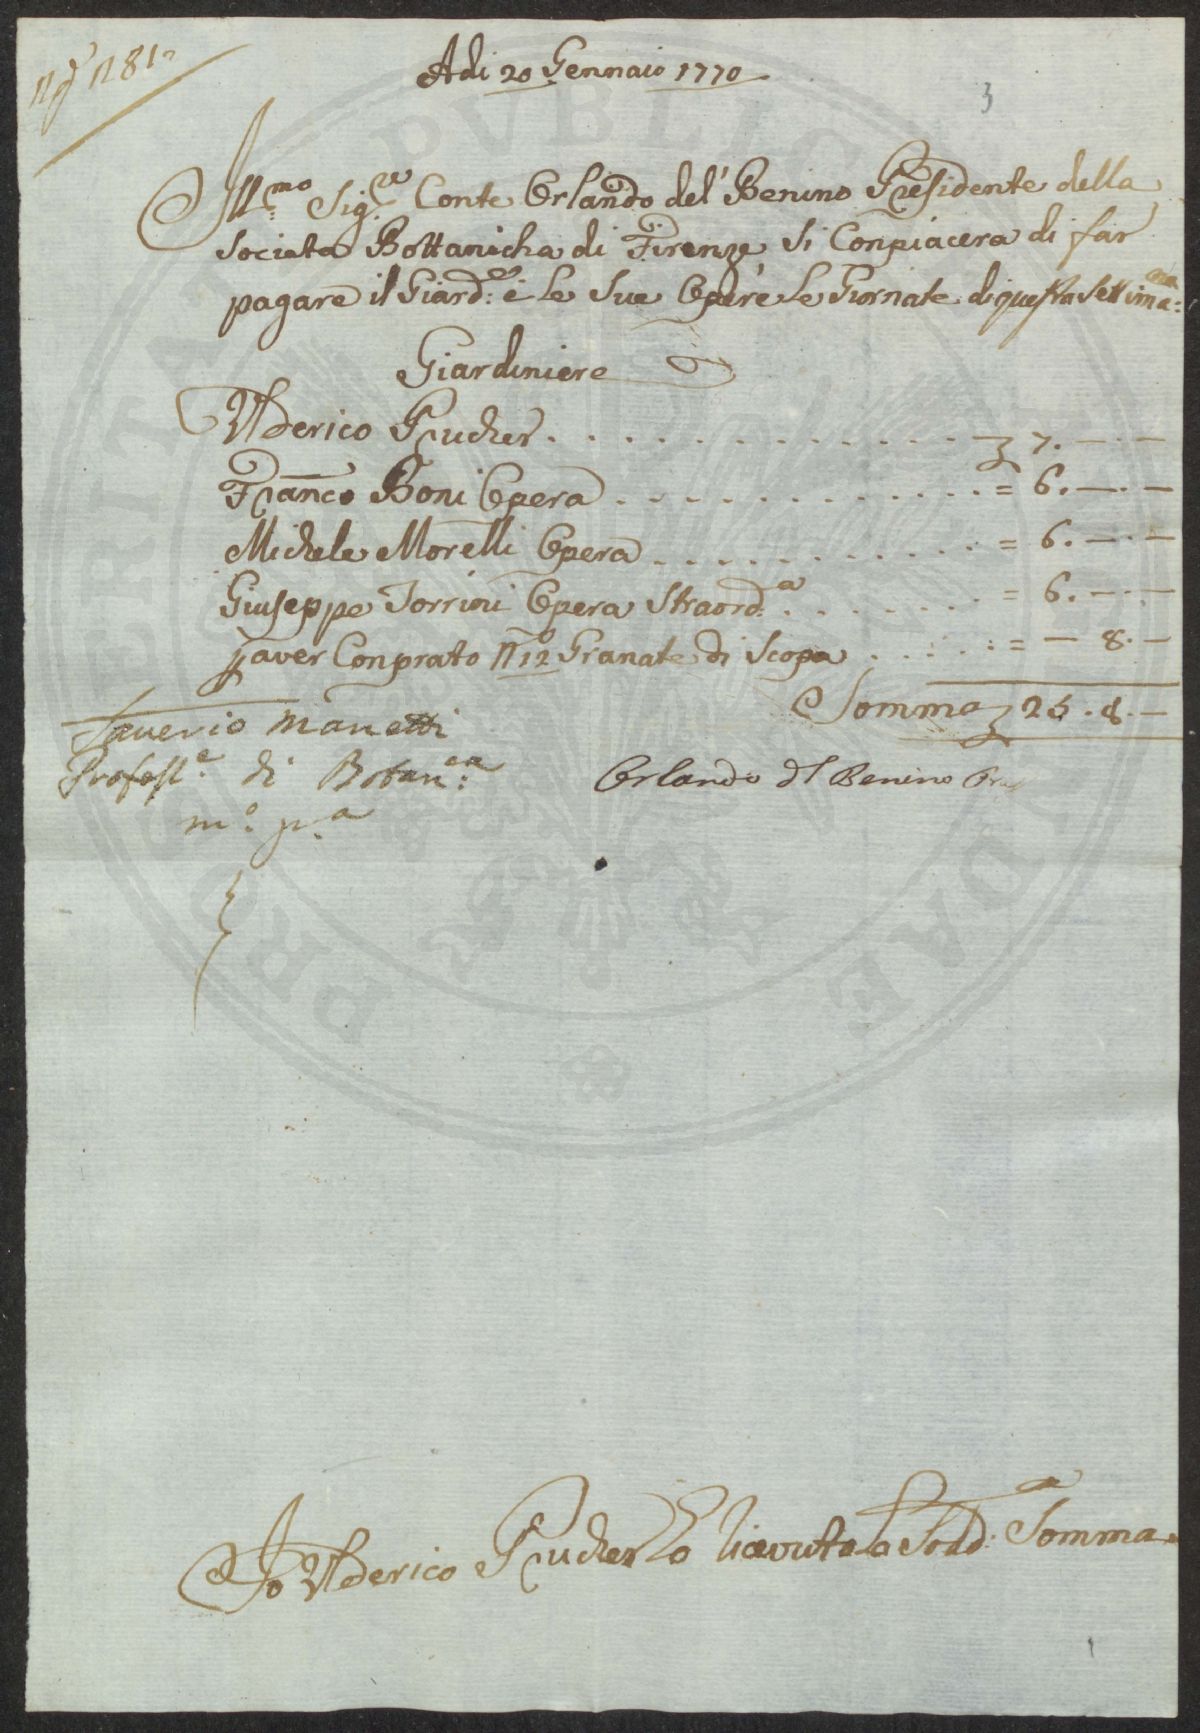 Adi 20 Gennaio 1770
3
Ill:mo Sig:re Conte Orlando del' Benino Presidente della
Sociata Bottanicha di Firenze Si Conpiacera di far
pagare il Giard:e e Le Sue Opere Le Giornate di questa Settima:na
Giardiniere
Ulderico Prucher . . . . . . . . . . . . . 7. — . —
Franco Boni Opera . . . . . . . . . . . . = 6. — . —
Michele Morelli Opera . . . . . . . . . = 6. — . —
Giuseppe Torrini Opera Straord:a . . . . . . = 6. — . —
p aver Conprato No 12 Granate di Scopa . . . . . = — 8. —
Somma 25. 8. —
Saverio Manetti
Profess:e di Botan:ca
m:o p:a
Orlando dl Benino
Io Ulderico Prucher o ricevuto la Sodd:a Somma
PROSPERITATI PUBLICAE